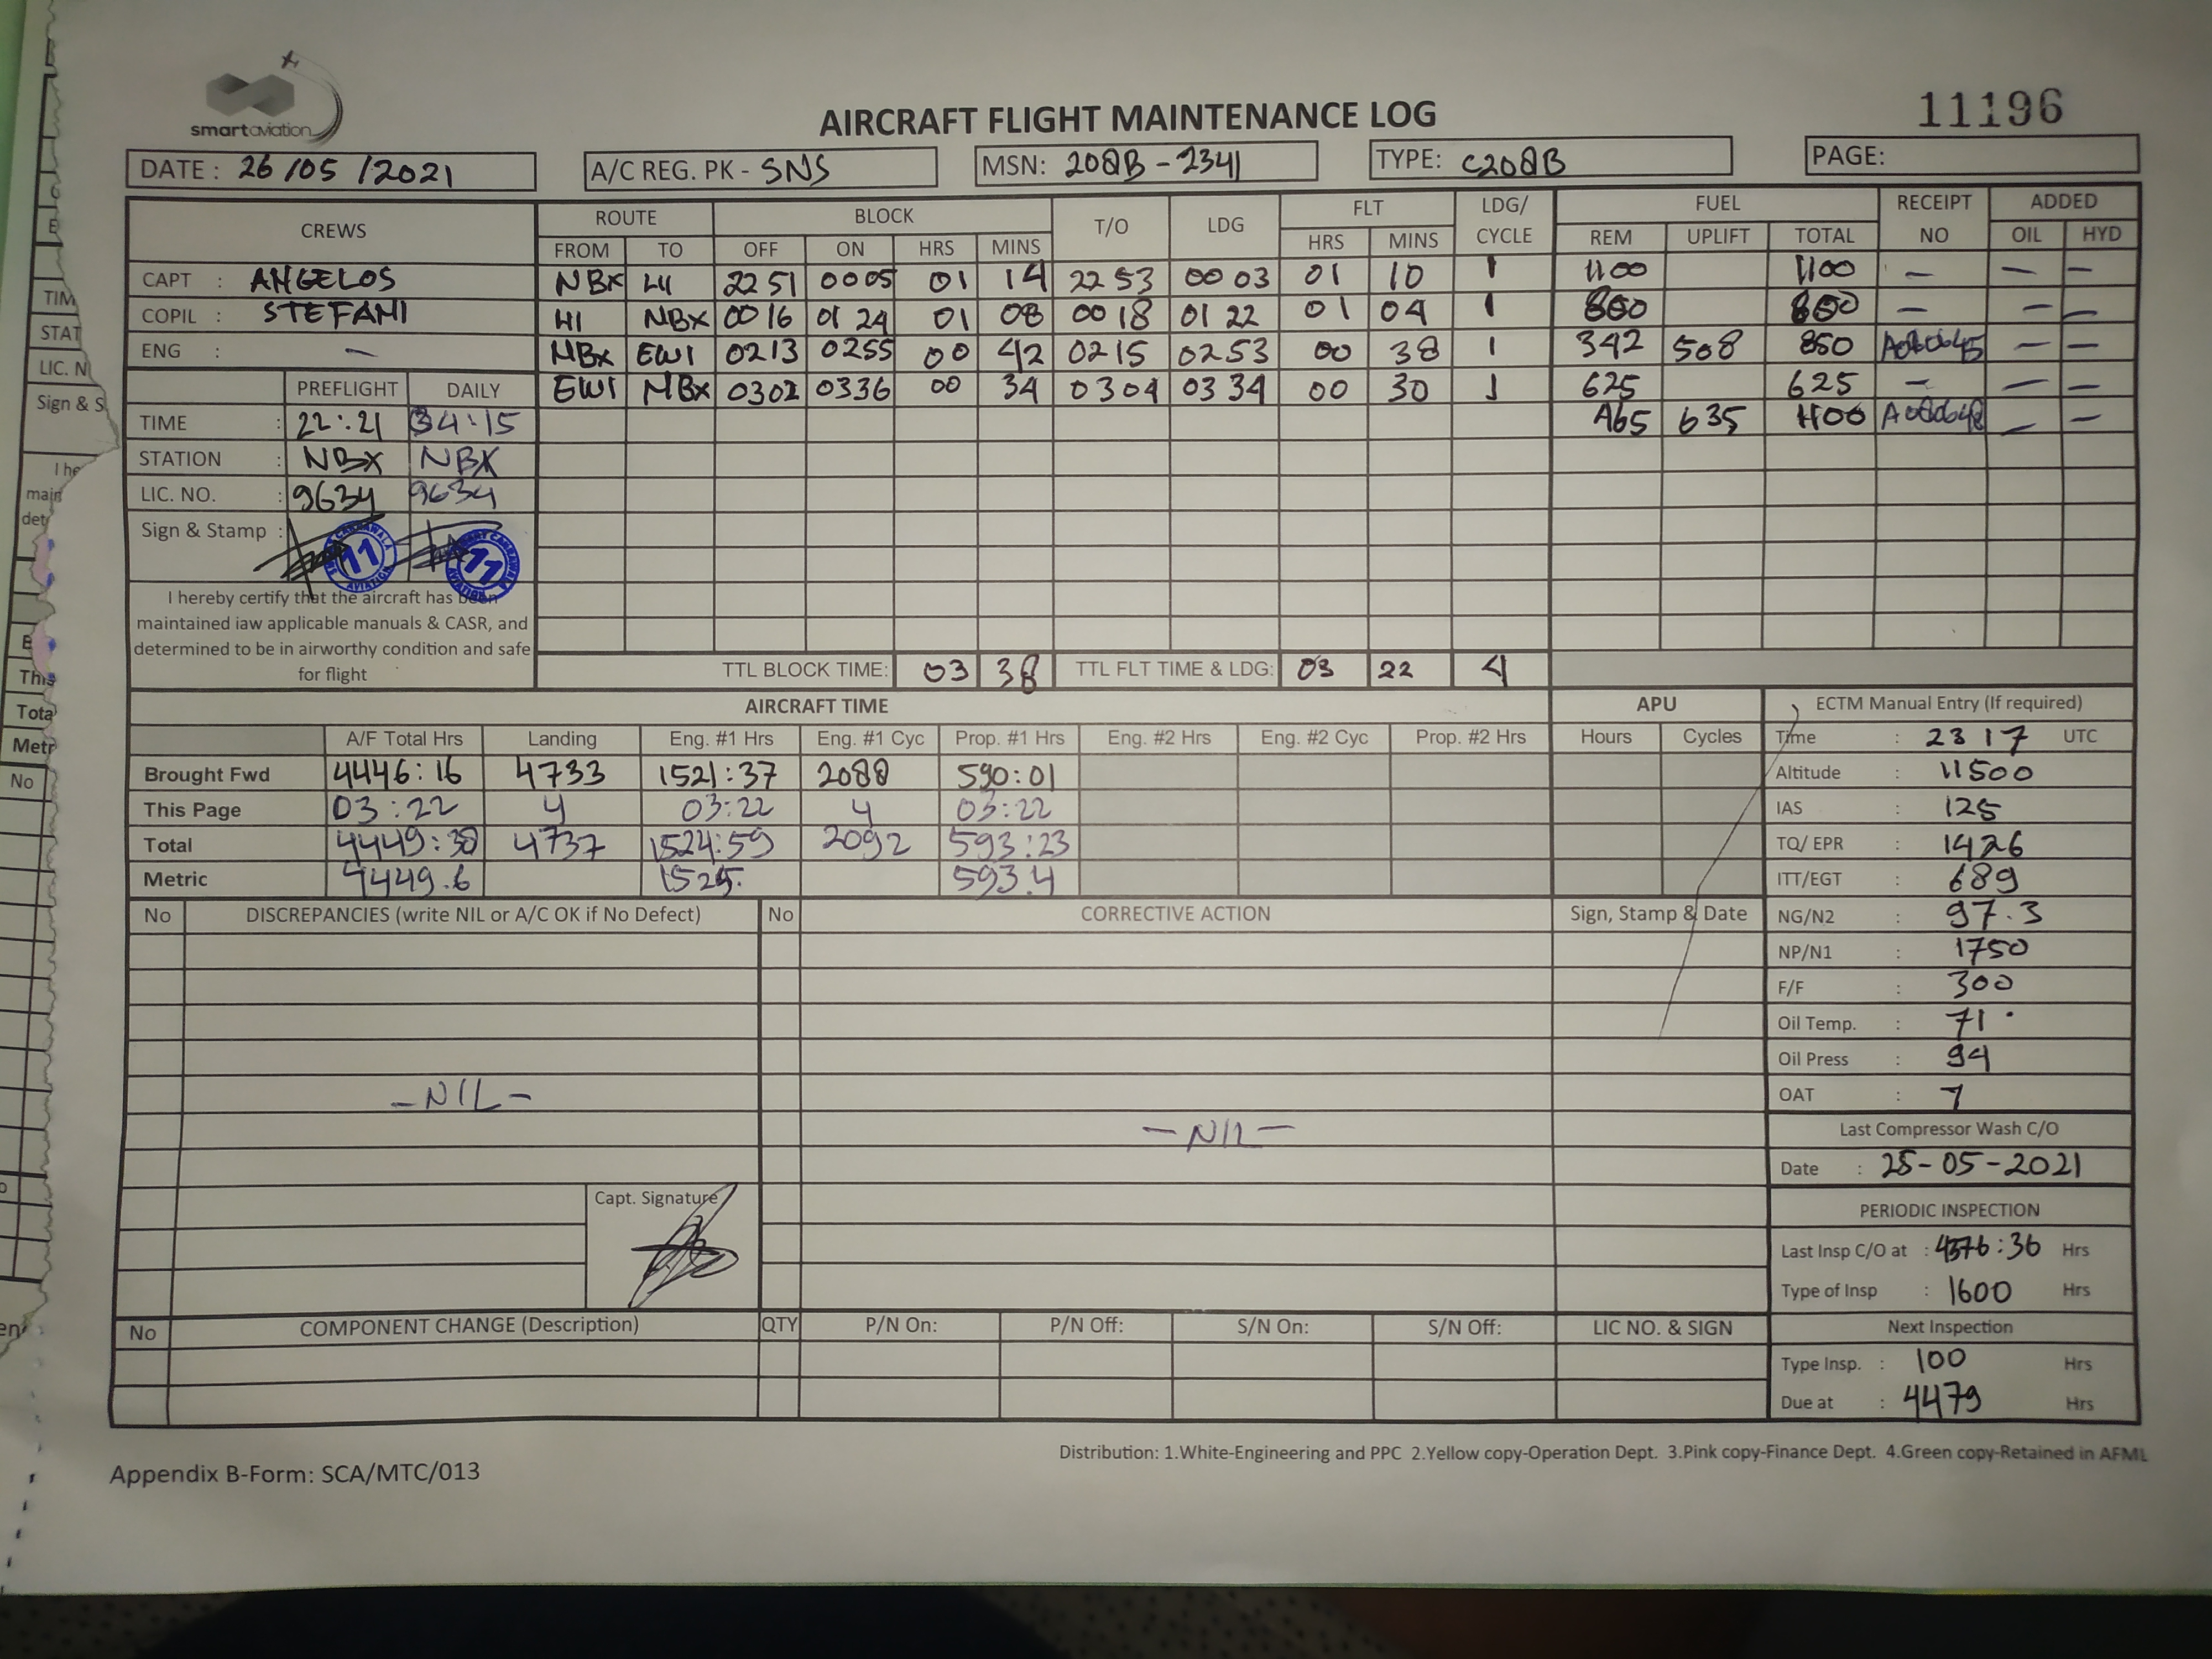 smartaviation
AIRCRAFT FLIGHT MAINTENANCE LOG
11196
DATE : 26/05/2021
A/C REG. PK - SNS
MSN: 208B-2341
TYPE: C208B
PAGE:
CREWS ROUTE BLOCK T/O LDG FLT LDG/CYCLE FUEL RECEIPT NO ADDED
FROM TO OFF ON HRS MINS HRS MINS REM UPLIFT TOTAL OIL HYD
CAPT : ANGELOS NBX 2251 0005 01 14 2253 0003 01 10 1 1100 1100 — — —
COPIL : STEFANI NBX 0016 0124 01 08 0018 0122 01 04 1 — — —
ENG : — NBX EWI 0213 0255 00 42 0215 0253 00 38 1 342 508 850 — —
EWI NBX 0302 0336 00 34 0304 0334 00 30 1 625 625 — — —
465 635 1100 — —
PREFLIGHT DAILY
TIME : 22:21
STATION : NBX NBX
LIC. NO. : 9634 9634
Sign & Stamp :
11
AVIATION
I hereby certify that the aircraft has been
maintained iaw applicable manuals & CASR, and
determined to be in airworthy condition and safe
for flight
TTL BLOCK TIME: 03 38 TTL FLT TIME & LDG: 03 22 4
AIRCRAFT TIME APU
A/F Total Hrs Landing Eng. #1 Hrs Eng. #1 Cyc Prop. #1 Hrs Eng. #2 Hrs Eng. #2 Cyc Prop. #2 Hrs Hours Cycles
Brought Fwd 4446:16 4733 1521:37 2088 590:01
This Page 03:22 4 03:22 4 03:22
Total 4449:38 4737 1524:59 2092 593:23
Metric 4449.6 1525. 593.4
ECTM Manual Entry (If required)
Time : 2317 UTC
Altitude : 11500
IAS : 125
TQ/ EPR : 1426
ITT/EGT : 689
NG/N2 : 97.3
NP/N1 : 1750
F/F : 300
Oil Temp. : 71°
Oil Press : 94
OAT : 7
Last Compressor Wash C/O
Date : 25-05-2021
PERIODIC INSPECTION
Last Insp C/O at : 4376:36 Hrs
Type of Insp : 1600 Hrs
Next Inspection
Type Insp. : 100 Hrs
Due at : 4479 Hrs
No DISCREPANCIES (write NIL or A/C OK if No Defect) No CORRECTIVE ACTION Sign, Stamp & Date
- NIL -
- NIL -
Capt. Signature
No COMPONENT CHANGE (Description) QTY P/N On: P/N Off: S/N On: S/N Off: LIC NO. & SIGN
Distribution: 1.White-Engineering and PPC 2.Yellow copy-Operation Dept. 3.Pink copy-Finance Dept. 4.Green copy-Retained in AFML
Appendix B-Form: SCA/MTC/013